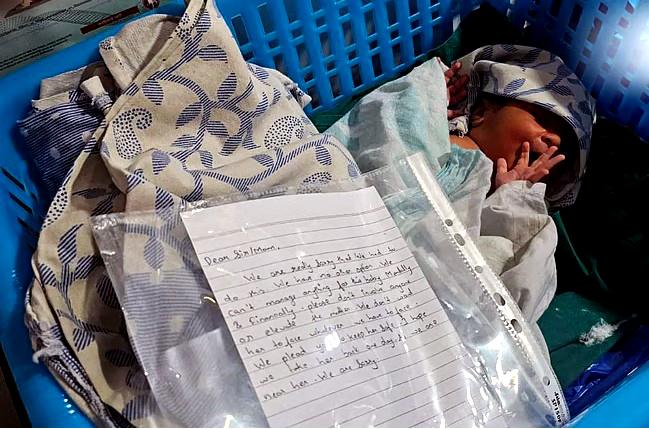 Dear Sir/Mom,
We are really sorry that we had to
do this. We have no other option. We
can't manage anything for this baby Mentally
& Financially. please don't involve anyone
or elevate the matter. We don't want
her to face whatever we have to face.
We plead you to keep her safe. I hope
we take her back one day. we are
near her. We are sorry.